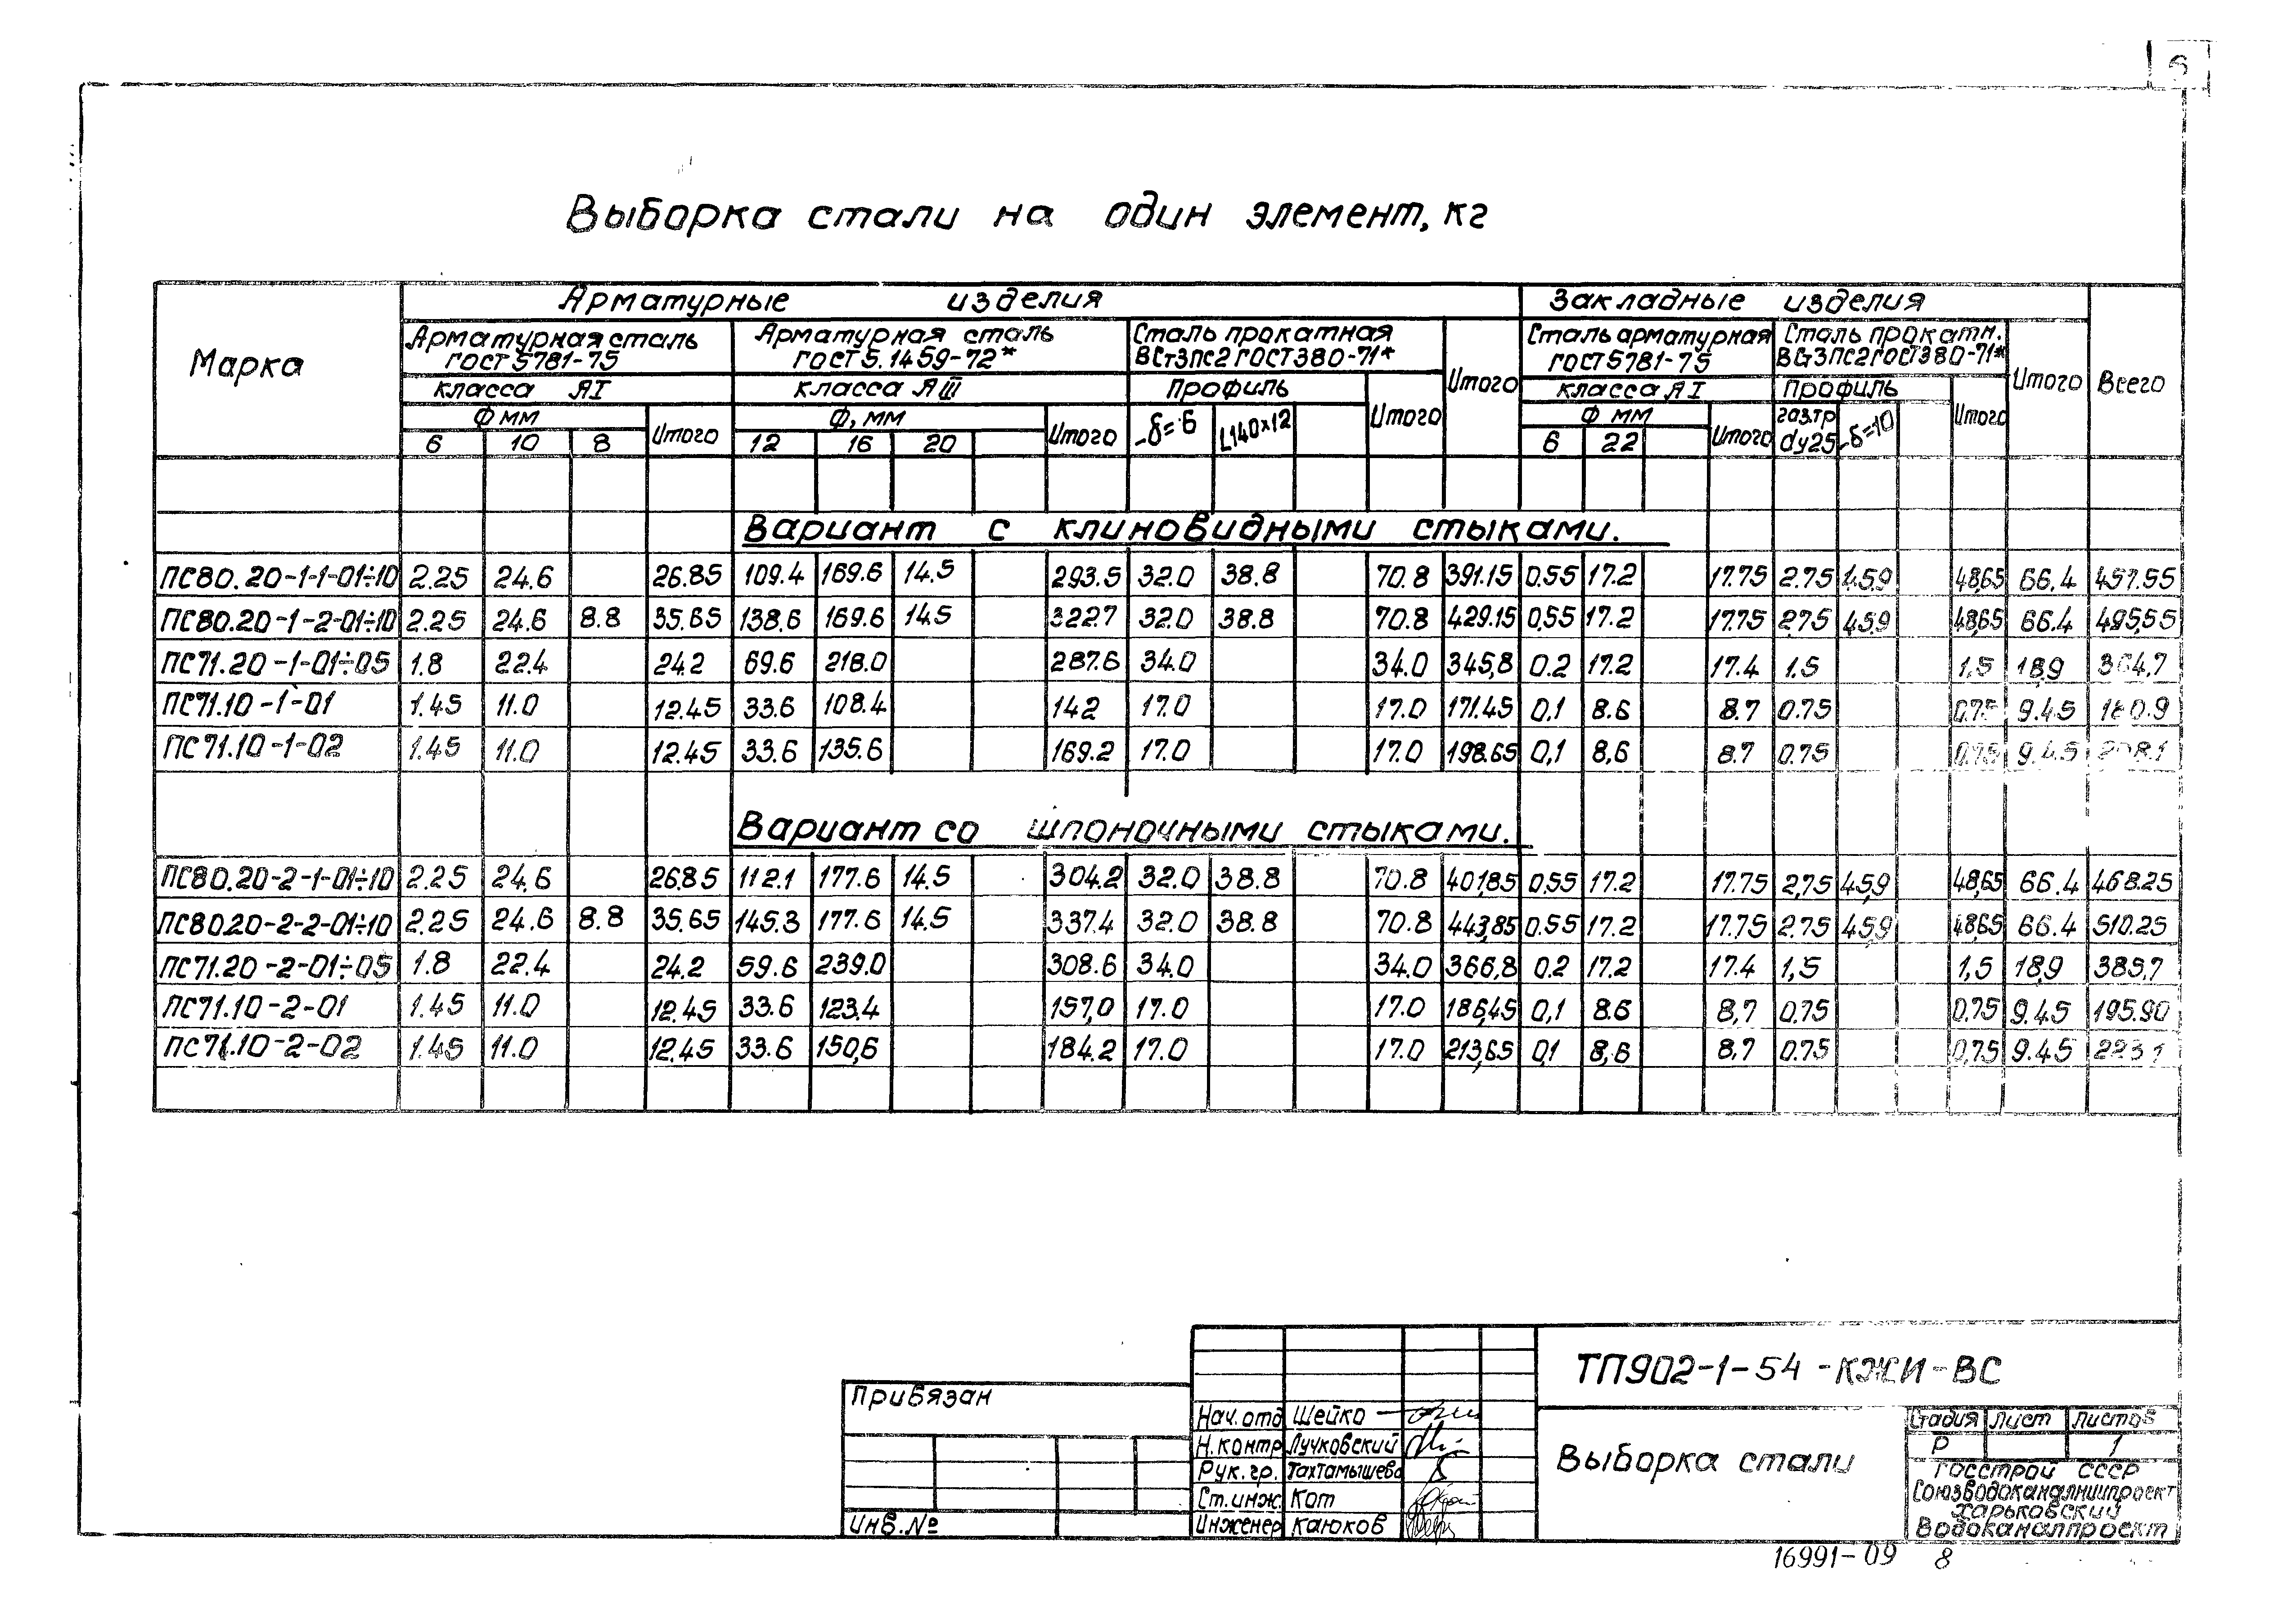 Выборка стали на один элемент, кг
Марка
Арматурные изделия
Закладные изделия
Всего
Арматурная сталь ГОСТ 5781-75
Арматурная сталь ГОСТ 5.1459-72*
Сталь прокатная ВСт3пс2 ГОСТ380-71*
Итого
Сталь арматурная ГОСТ5781-75
Сталь прокатн. ВСт3пс2 ГОСТ380-71*
Итого
класса АI
класса АIII
Профиль
Итого
класса АI
Профиль
Итого
Ф мм
Итого
Ф, мм
Итого
-δ=6
L140×12
Ф мм
Итого
газ.тр dy25
-δ=10
6 10 8
12 16 20
6 22
Вариант с клиновидными стыками.
ПС80.20-1-1-01÷10 2.25 24.6 26.85 109.4 169.6 14.5 293.5 32.0 38.8 70.8 391.15 0.55 17.2 17.75 2.75 45.9 48,65 66.4 457.55
ПС80.20-1-2-01÷10 2.25 24.6 8.8 35.65 138.6 169.6 14.5 322.7 32.0 38.8 70.8 429.15 0,55 17.2 17.75 2,75 45,9 48,65 66.4 495,55
ПС71.20-1-01÷05 1.8 22.4 24.2 69.6 218.0 287.6 34.0 34.0 345,8 0.2 17.2 17.4 1.5 1,5 18,9 364,7
ПС71.10-1-01 1.45 11.0 12.45 33.6 108.4 142 17.0 17.0 171.45 0,1 8.6 8.7 0.75 0,75 9.45 180.9
ПС71.10-1-02 1.45 11.0 12.45 33.6 135.6 169.2 17.0 17.0 198.65 0,1 8,6 8.7 0.75 0,75 9.45 208.1
Вариант со шпоночными стыками.
ПС80.20-2-1-01÷10 2.25 24.6 26.85 112.1 177.6 14.5 304.2 32.0 38.8 70.8 401,85 0.55 17.2 17.75 2,75 45,9 48,65 66.4 468.25
ПС80.20-2-2-01÷10 2.25 24.6 8.8 35.65 145.3 177.6 14.5 337.4 32.0 38.8 70.8 443,85 0.55 17.2 17.75 2.75 45,9 48,65 66.4 510.25
ПС71.20-2-01÷05 1.8 22.4 24.2 59.6 239.0 308.6 34.0 34.0 366,8 0.2 17.2 17.4 1,5 1,5 18,9 385,7
ПС71.10-2-01 1.45 11.0 12.45 33.6 123.4 157,0 17.0 17.0 186,45 0,1 8.6 8,7 0.75 0.75 9.45 195.90
ПС71.10-2-02 1.45 11.0 12.45 33.6 150,6 184.2 17.0 17.0 213,65 0,1 8,6 8,7 0.75 0,75 9.45 223.1
Привязан
Инв.№
Нач. отд Шейко
Н.контр Лучковский
Рук.гр. Тахтамышева
Ст.инж. Кот
Инженер Каюков
ТП902-1-54-КЖИ-ВС
Выборка стали
Стадия Лист Листов
Р 1
Госстрой СССР
Союзводоканалниипроект
Харьковский
Водоканалпроект
16991-09 8